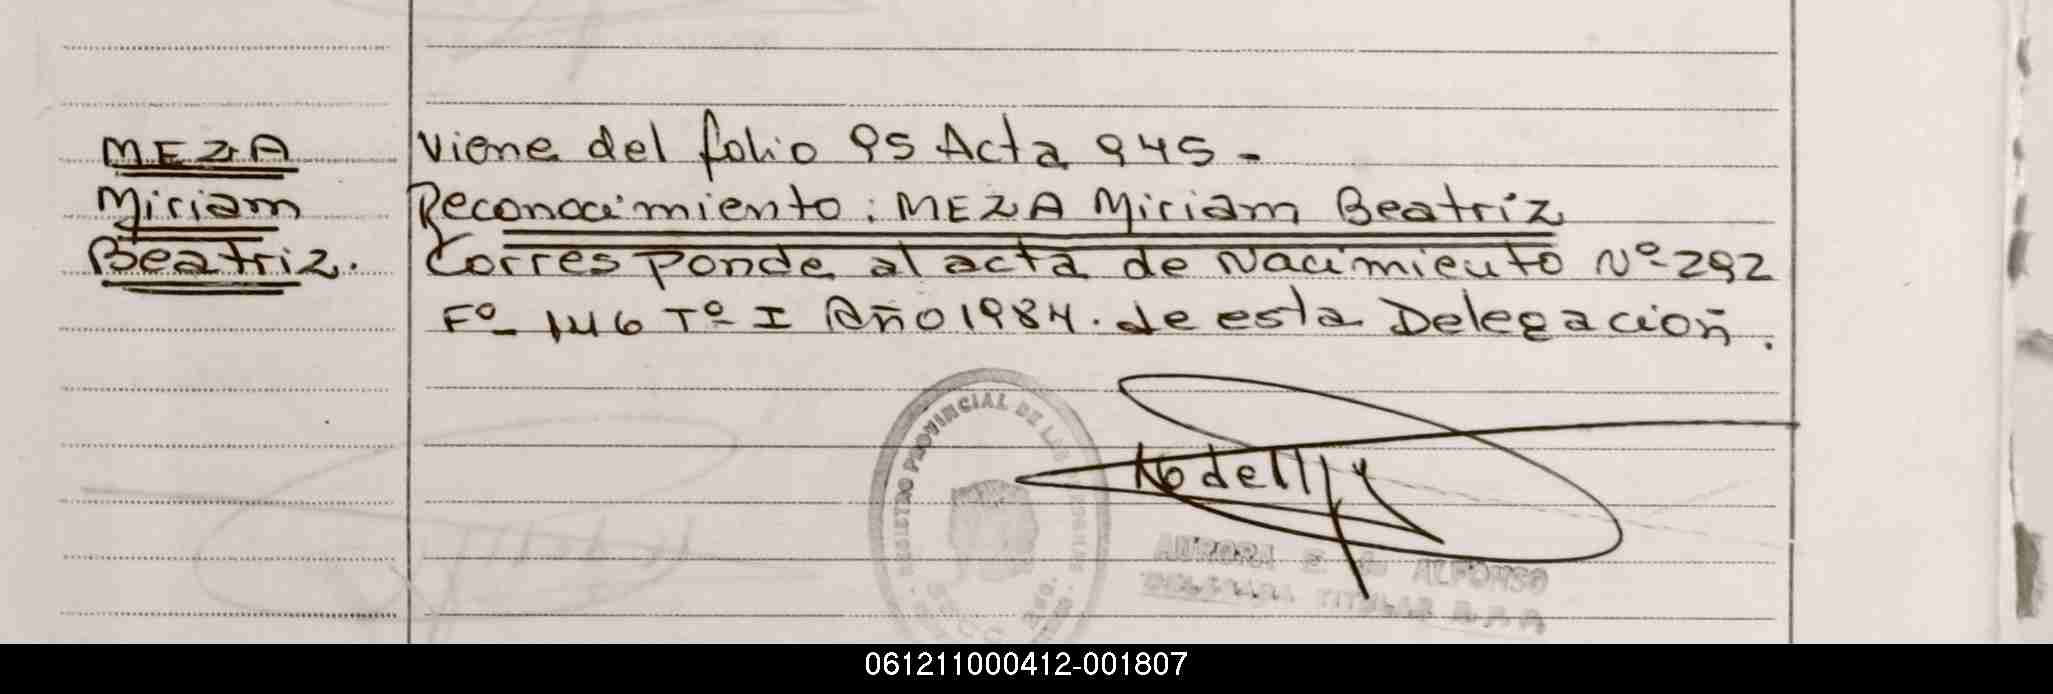 MEZA
Miriam
Beatriz.
Viene del folio 95 Acta 945-
Reconocimiento: MEZA Miriam Beatriz
Corresponde al acta de Nacimiento Nº 292
Fº 146 Tº I Año 1984. de esta Delegación.
REGISTRO PROVINCIAL DE LAS PERSONAS
AURORA ALFONSO
DELEGADA TITULAR
061211000412-001807